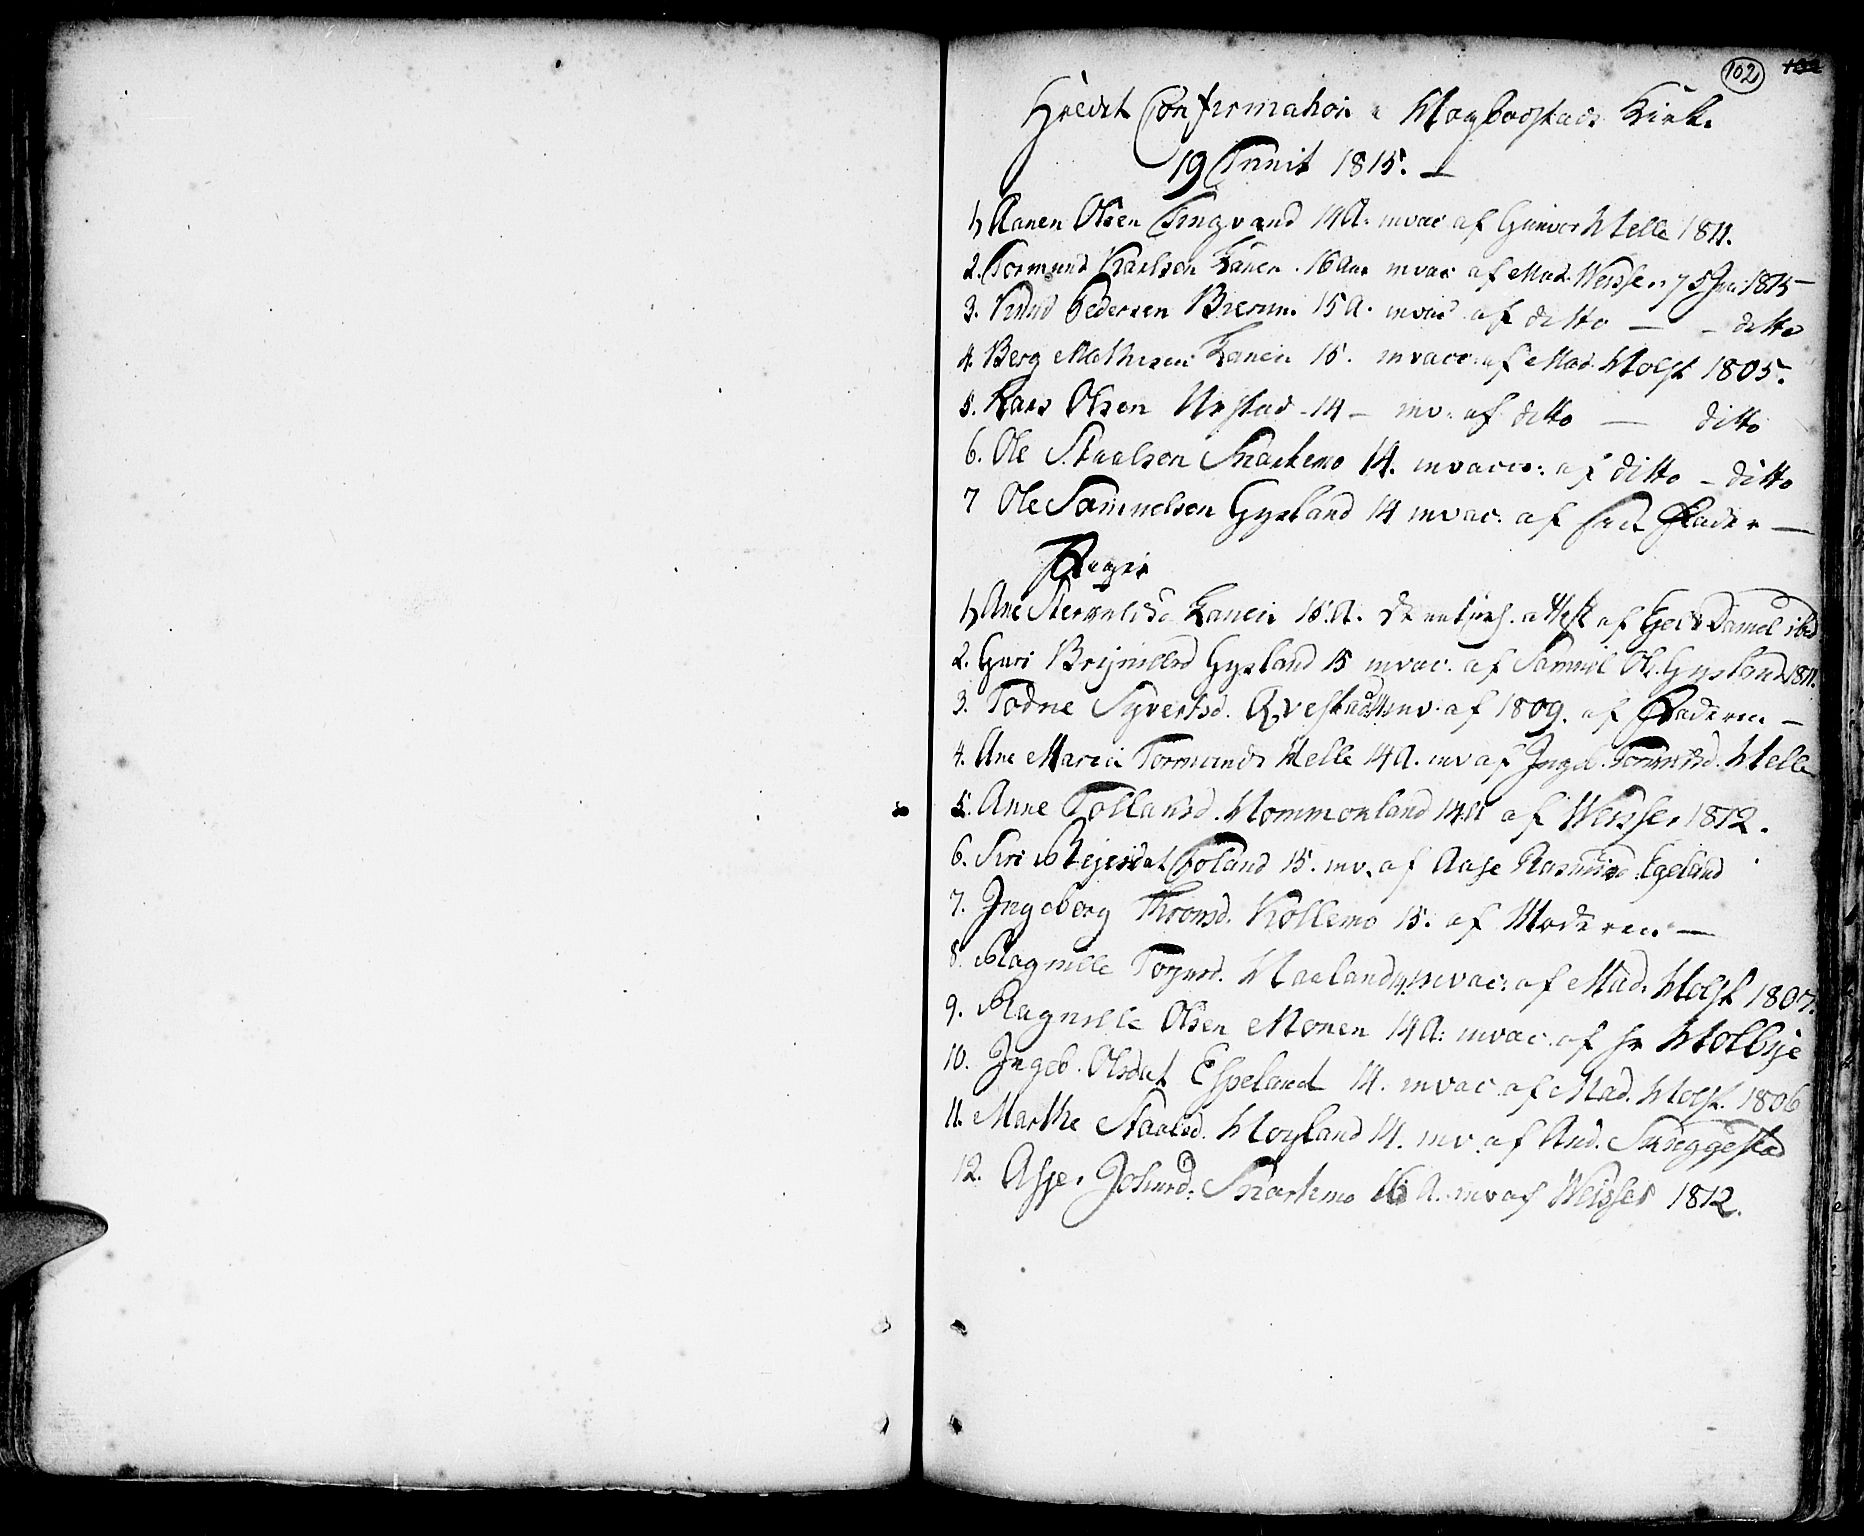 102
Holdt Confirmation i Hægbostads Kirke
19 Junii 1815. —
1, Aanen Olsen Tingvand 14 A. mvac af Gunvor Helle 1811.
2. Tormund Karlsen Lanen. 16 Aar mvac af Mad. Weisse, 1815 —
3. Knud Pedersen Birkem. 15 A. mvac af ditto — - ditto
4. Berg Mathisen Lanen 15. mvacc. af Mad. Holst 1805.
5. Lars Olsen Urstad - 14 — mv. af ditto — ditto
6. Ole Staalsen Snartemo 14. mvacc: af ditto - ditto
7 Ole Samuelsen Gysland 14 mvac. af sin Fader —
Piger
1, Ane Lanen 15 A. attest af Daniel ibid
2. Guri Gysland 15 mvac. af Samuel Ols. Gysland 1811.
3. Todne Syvertsd. Qvestad mv. af 1809. af Faderen —
4. Ane Maria Tormundsd Helle 14 A. mv af Ingeb. Tormundsd. Helle
5. Anne Tollausd. Hommonland 14 A af Weisse, 1812.
6. Siri Foland 15. mv. af Aase Rasmusd. Egeland
7. Ingeborg Thronsd. Kollemo 15. af Moderen —
8. Ragnille Torjusd. Haaland 14. mvac: af Mad. Holst 1807.
9. Ragnille Olsen Monen 14 A: mvac. af hr Holbye
10. Ingeb. Olsdat Espeland 14. mvac af Mad. Holst. 1806
11. Marthe Staalsd. Høyland 14. mv. af And. Snuggestad
12. Asje, Johnsd. Snartemo 16 A. mv af Weisse 1812.